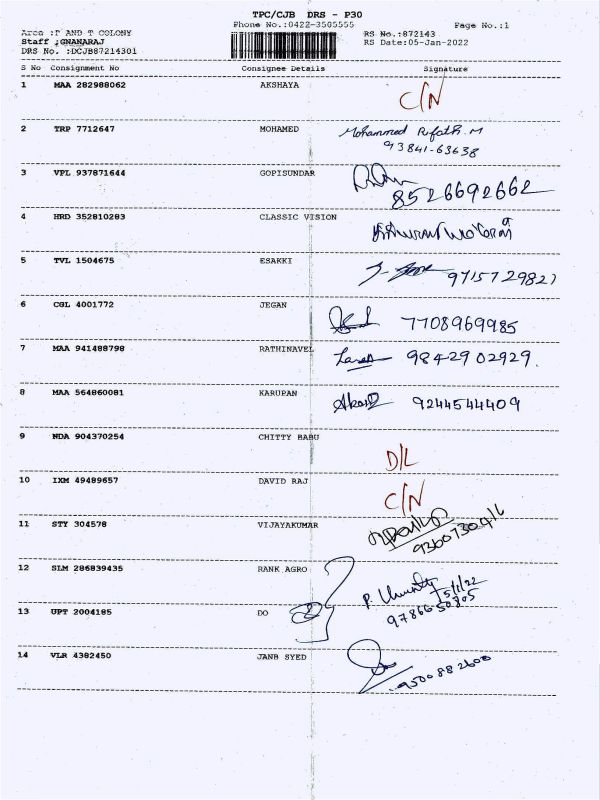 TPC/CJB DRS - P30
Phone No.:0422-3505555 Page No.:1
Area :P AND T COLONY RS No.:872143
Staff :GNANARAJ RS Date:05-Jan-2022
DRS No. :DCJB87214301
S No Consignment No Consignee Details Signature
1 MAA 282988062 AKSHAYA C/N
2 TRP 7712647 MOHAMED Mohammed Rifath. M
93841-63638
3 VPL 937871644 GOPISUNDAR
8526692662
4 HRD 352810283 CLASSIC VISION
5 TVL 1504675 ESAKKI 9715729827
6 CGL 4001772 JEGAN 7708969985
7 MAA 941488798 RATHINAVEL 98429 02929.
8 MAA 564860081 KARUPAN 9244544409
9 NDA 904370254 CHITTY BABU D/L
10 IXM 49489657 DAVID RAJ C/N
11 STY 304578 VIJAYAKUMAR 9360730416
12 SLM 286839435 RANK AGRO P. 5/1/22
13 UPT 2004185 DO 9786650805
14 VLR 4382450 JANB SYED 9500882600